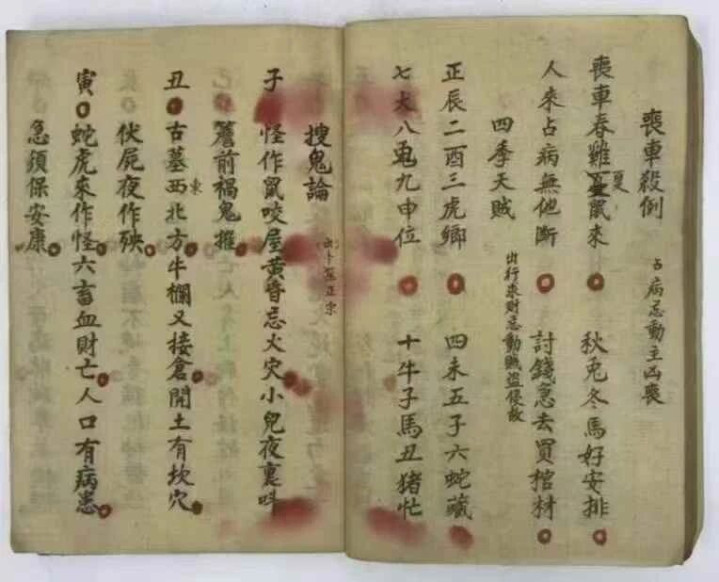 喪車殺例 占病忌動主凶喪
喪車春雞夏鼠來 秋兎冬馬好安排
人來占病無他斷 討錢急去買棺材
四季天賊 出行求財忌動賊盜侵故
正辰二酉三虎鄉 四未五子六蛇藏
七犬八兎九申位 十牛子馬丑猪忙
搜鬼論 出卜筮正宗
子 怪作鼠咬屋黃昏忌火灾小兒夜裏呌
簷前禍鬼摧
丑 古墓西東北方牛欄又接倉開土有坎穴
伏屍夜作殃
寅 蛇虎來作怪六畜血財亡人口有病恙
急須保安康